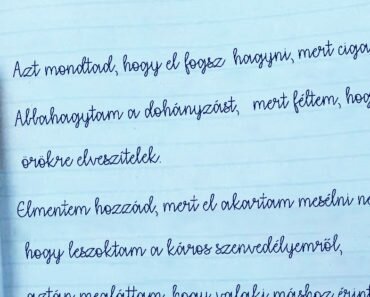 Azt mondtad, hogy el fogsz hagyni, mert ciga
Abbahagytam a dohányzást, mert féltem, hog
örökre elveszítelek.
Elmentem hozzád, mert el akartam mesélni ne
hogy leszoktam a káros szenvedélyemről,
aztán megláttam, hogy valaki máshoz érint